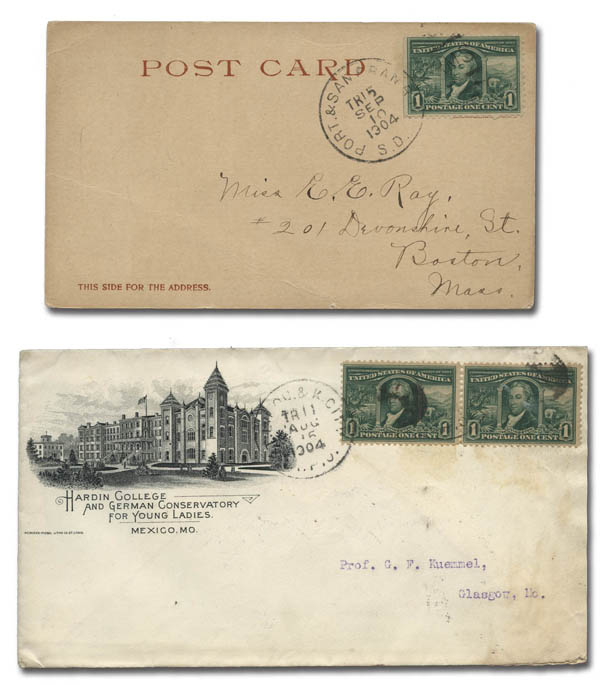 POST CARD
PORT. & SAN FRAN.
TR15
SEP
10
1904
S.D.
UNITED STATES OF AMERICA
1 POSTAGE ONE CENT 1
Miss E. E. Ray,
#201 Devonshire, St.
Boston,
Mass.
THIS SIDE FOR THE ADDRESS.
& K. CITY
TR11
AUG
15
1904
R.P.O.
UNITED STATES OF AMERICA
1 POSTAGE ONE CENT 1
UNITED STATES OF AMERICA
1 POSTAGE ONE CENT 1
HARDIN COLLEGE
AND GERMAN CONSERVATORY
FOR YOUNG LADIES.
MEXICO, MO.
Prof. G. F. Kuemmel,
Glasgow, Mo.